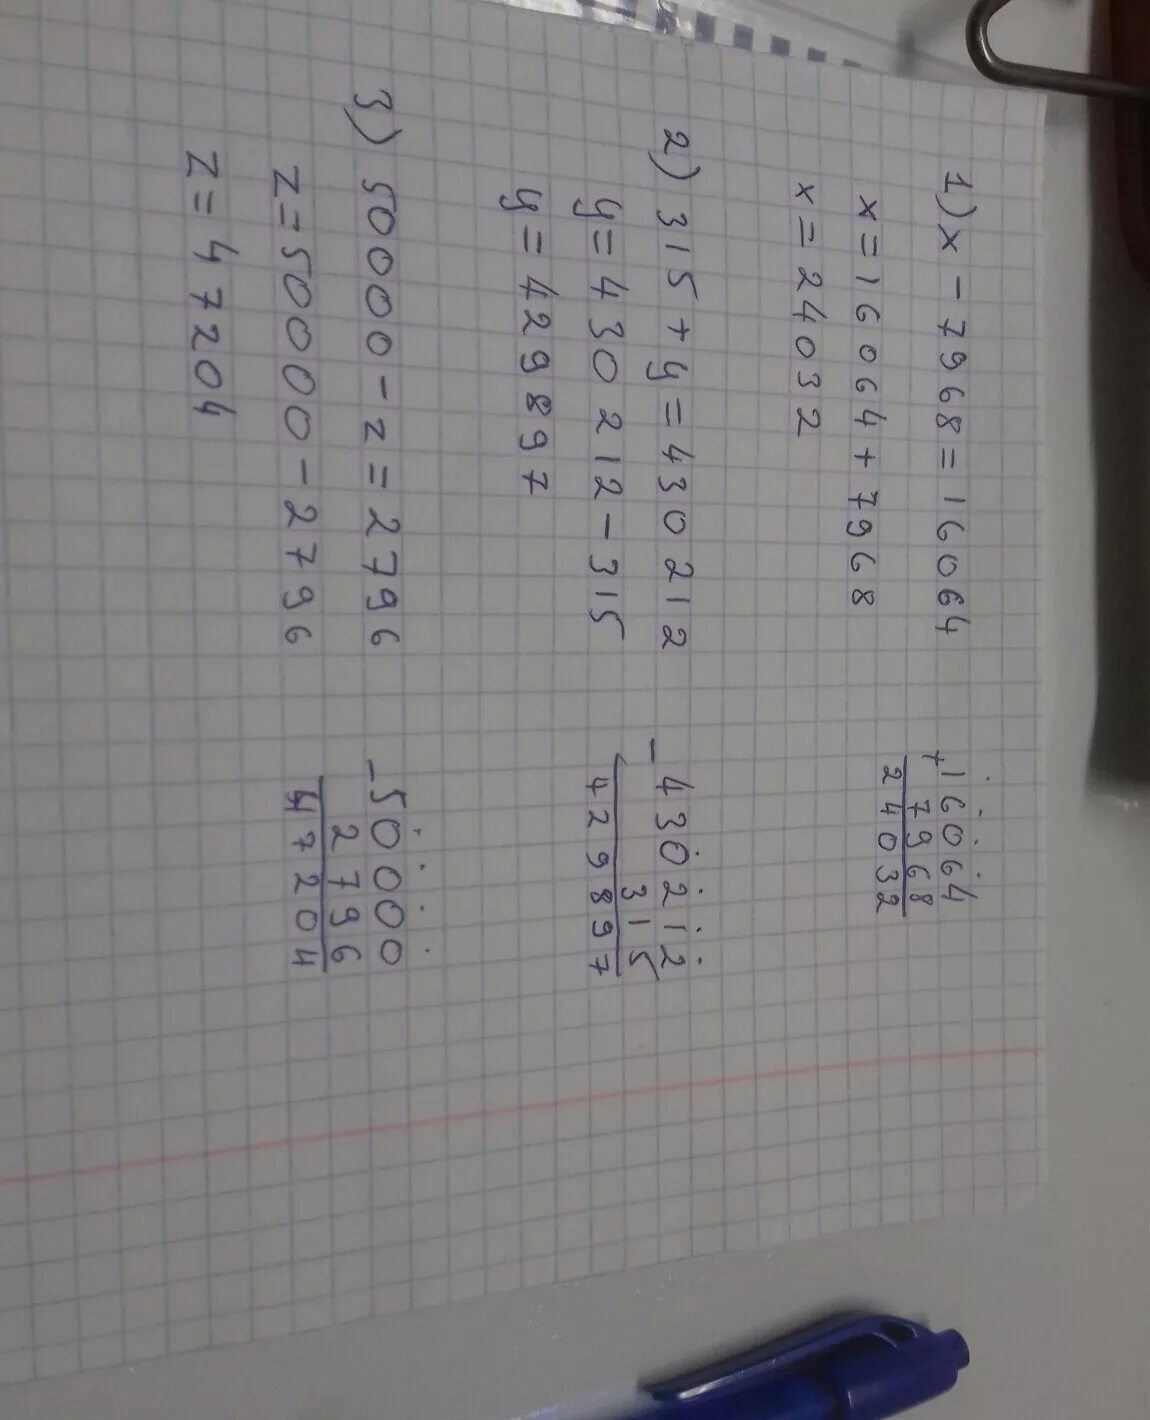 1) x - 7968 = 16064
x = 16064 + 7968
x = 24032
+16064
7968
24032
2) 315 + y = 430 212
y = 430 212 - 315
y = 429897
-430212
315
429897
3) 50000 - z = 2796
z = 50000 - 2796
z = 47204
-50000
2796
47204